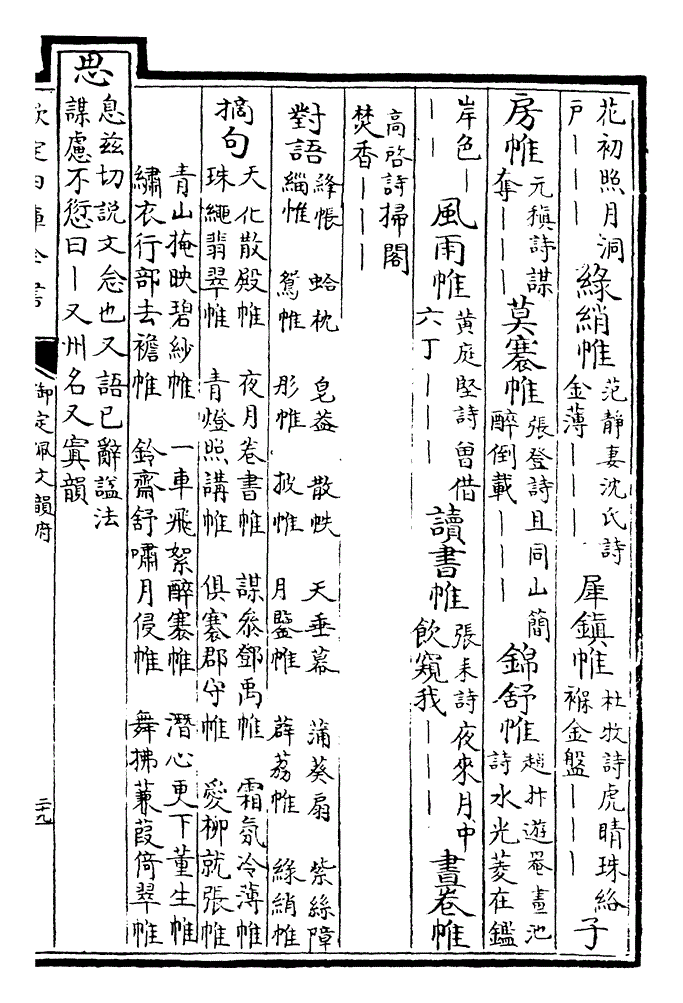 花初照月洞戶｜｜｜ 綠綃帷 范靜妻沈氏詩金薄｜｜｜ 犀鎮帷 杜牧詩虎睛珠絡褓金盤｜｜｜ 子
房帷 元稹詩謀奪｜｜ 莫褰帷 張登詩且同山簡醉倒載｜｜｜ 錦舒帷 趙抃遊罨畫池詩水光菱在鑑
岸色｜｜｜ 風雨帷 黃庭堅詩曾借六丁｜｜｜ 讀書帷 張耒詩夜來月中飲窺我｜｜｜ 書卷帷
高啓詩掃閣焚香｜｜｜
對語 絳帳 緇帷 蛤枕 鴛帷 皂葢 彤帷 散帙 披帷 天垂幕 月鑒帷 蒲葵扇 薜荔帷 紫絲障 綠綃帷
摘句 天化散殿帷 夜月卷書帷 謀叅鄧禹帷 霜氛冷薄帷
珠繩翡翠帷 青燈照講帷 俱褰郡守帷 愛柳就張帷
青山掩映碧紗帷 一車飛絮醉褰帷 潛心更下董生帷
繡衣行部去襜帷 鈴齋舒嘯月侵帷 舞拂蒹葭倚翠帷
思 息兹切說文念也又語已辭諡法
謀慮不愆曰｜又州名又寘韻
欽定四庫全書 御定佩文韻府 二十九